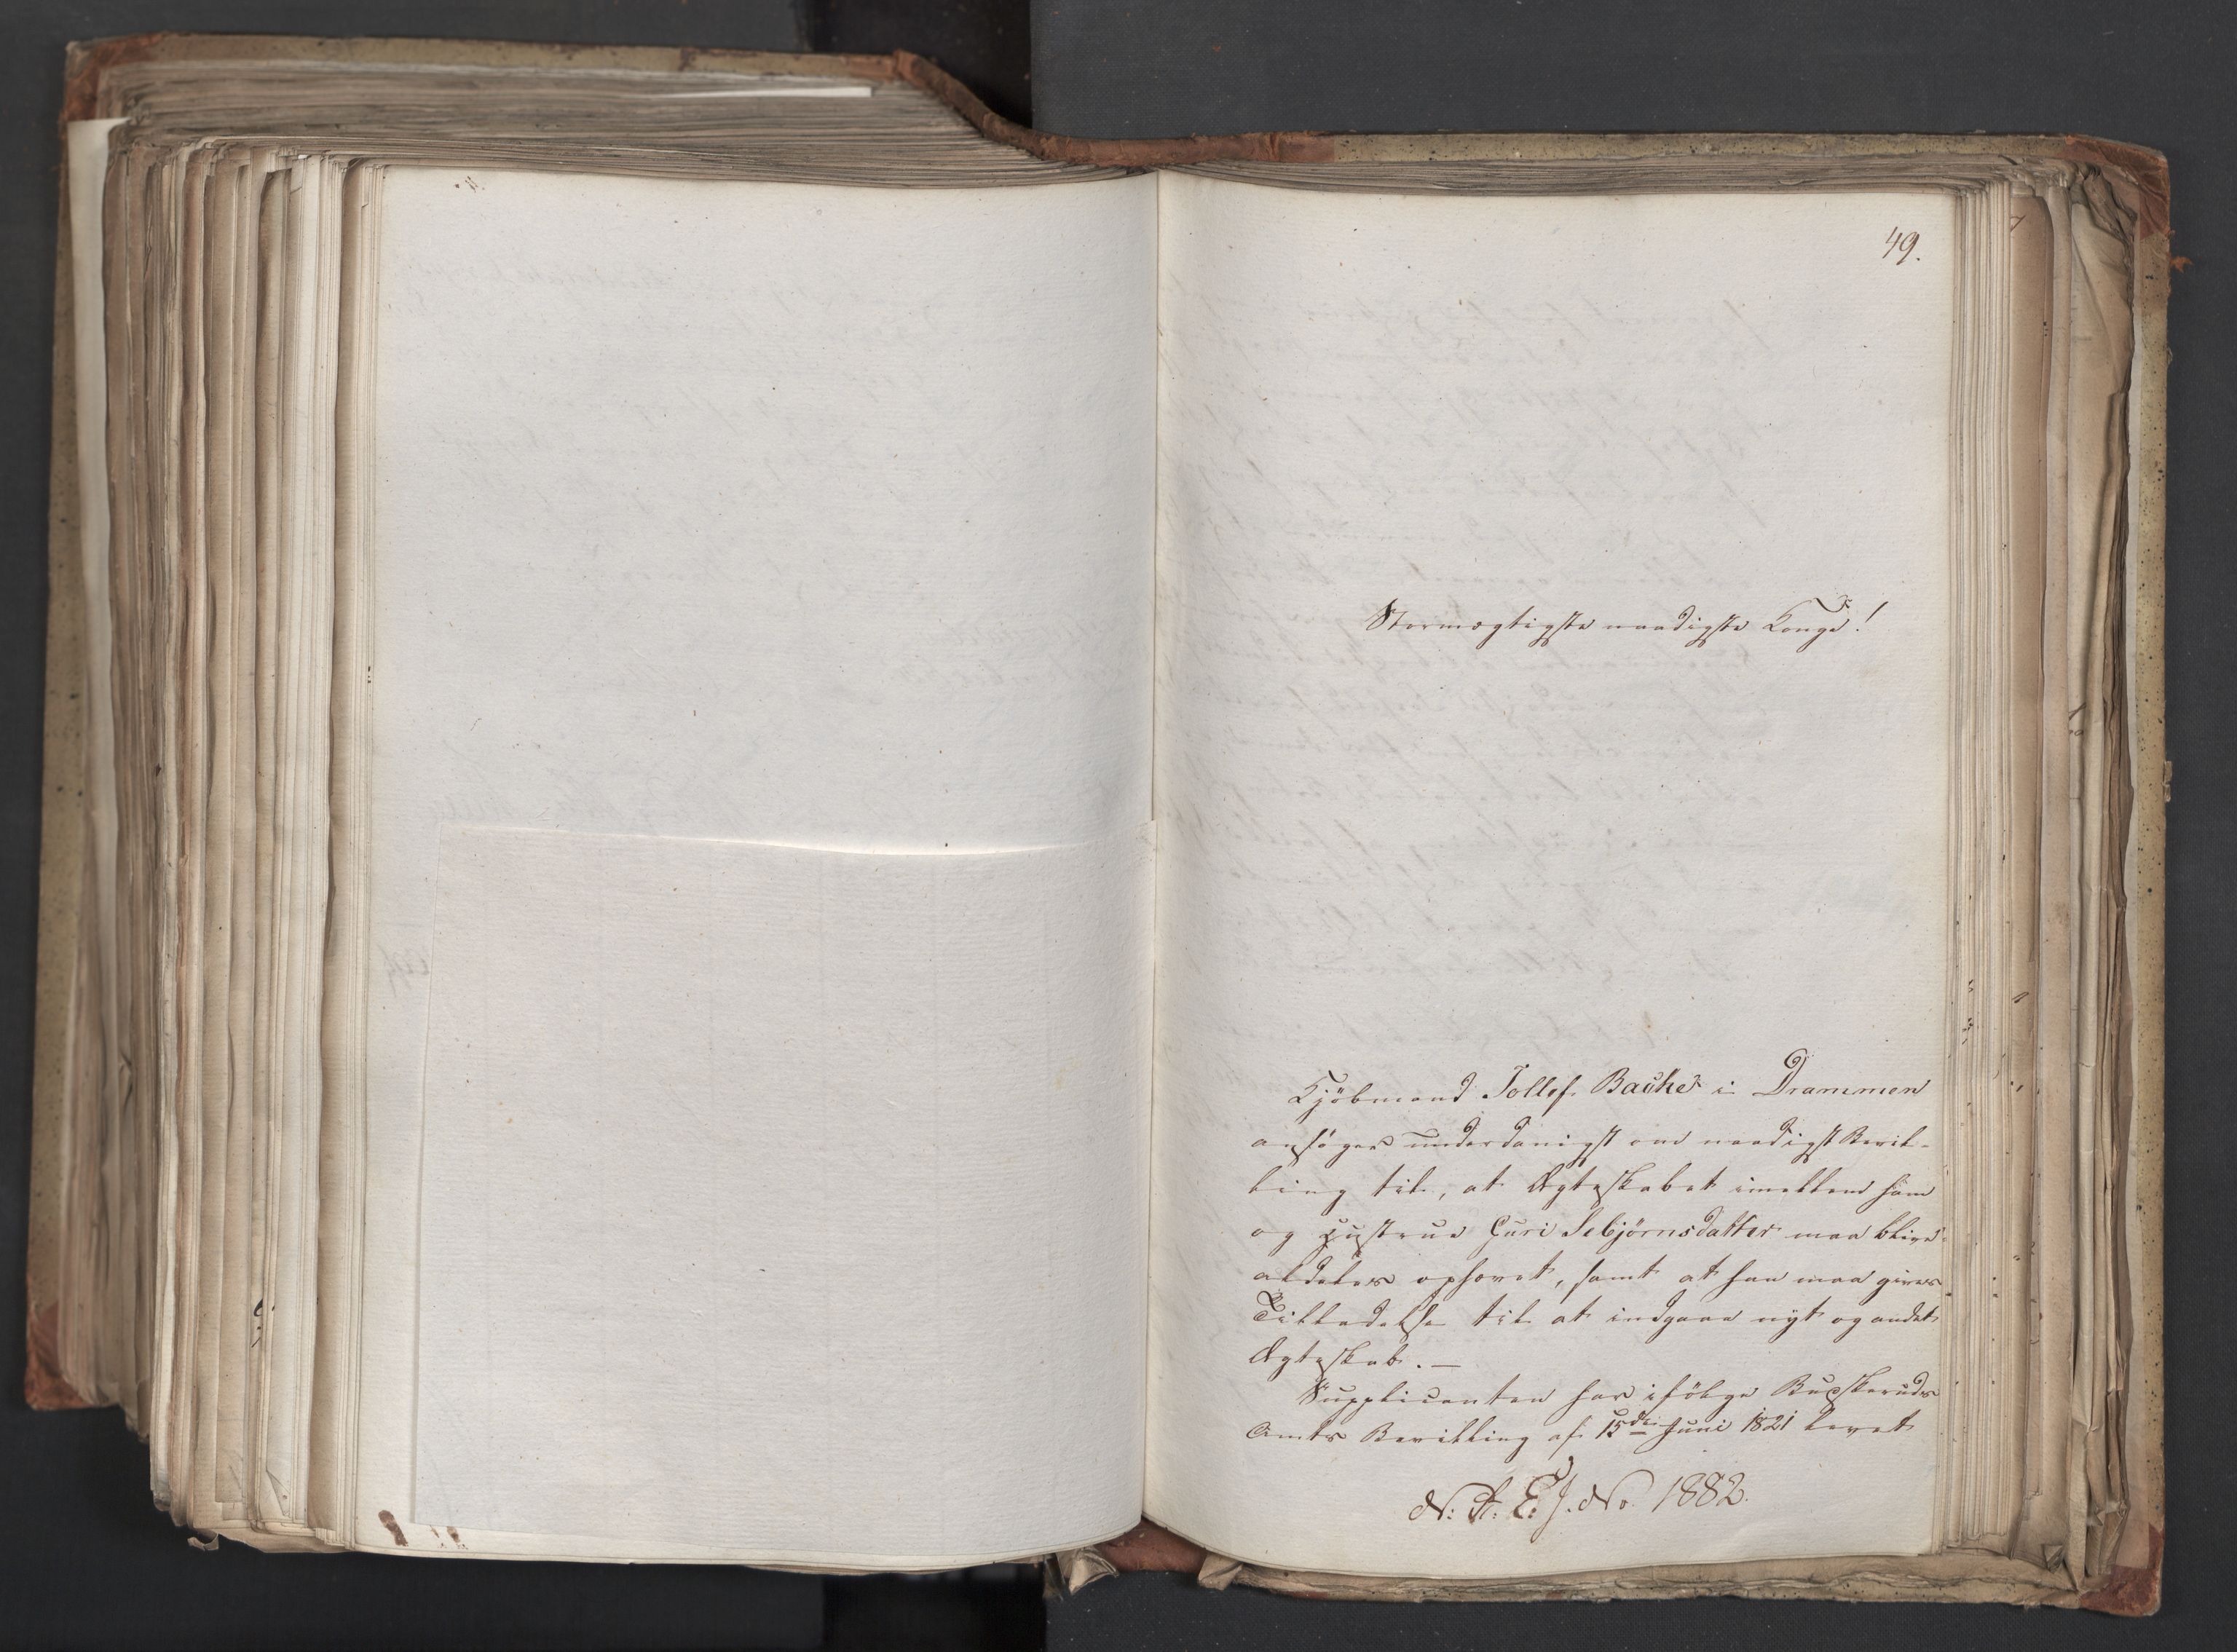 49.
Stormægtigste naadigste Konge!
Kjöbmand Tollef Backe i Drammen
ansöger underdanigst om naadigst Bevil-
ling til, at Ægteskabet imellem ham
og Hustrue Guri Sebjörnsdatter maa blive
aldeles ophævet, samt at han maa gives
Tilladelse til at indgaae nyt og andet
Ægteskab. —
Supplicanten har ifölge Buskeruds
Amts Bevilling af 15de Juni 1821 levet
N: A: E. J. No. 1882.